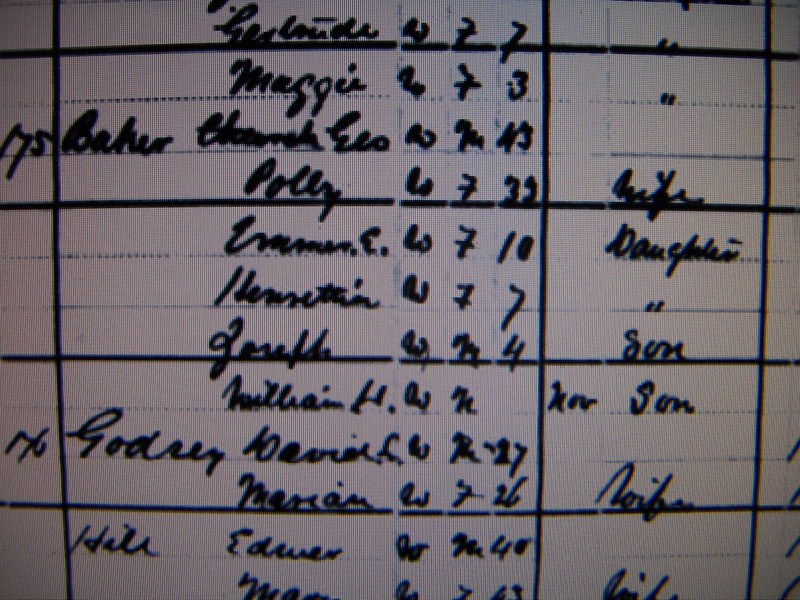 Gertrude W 7 7 "
Maggie W 7 3 "
175 Baker Geo W M 43
Polly W 7 39 Wife
Emmer. E. W 7 10 Daughter
Henrettia W 7 7 "
Joseph W M 4 Son
William H. W M Nov Son
176 Godsey David L. W M 27
Marian W 7 26 Wife
Hill W M 40
W 7 43 Wife